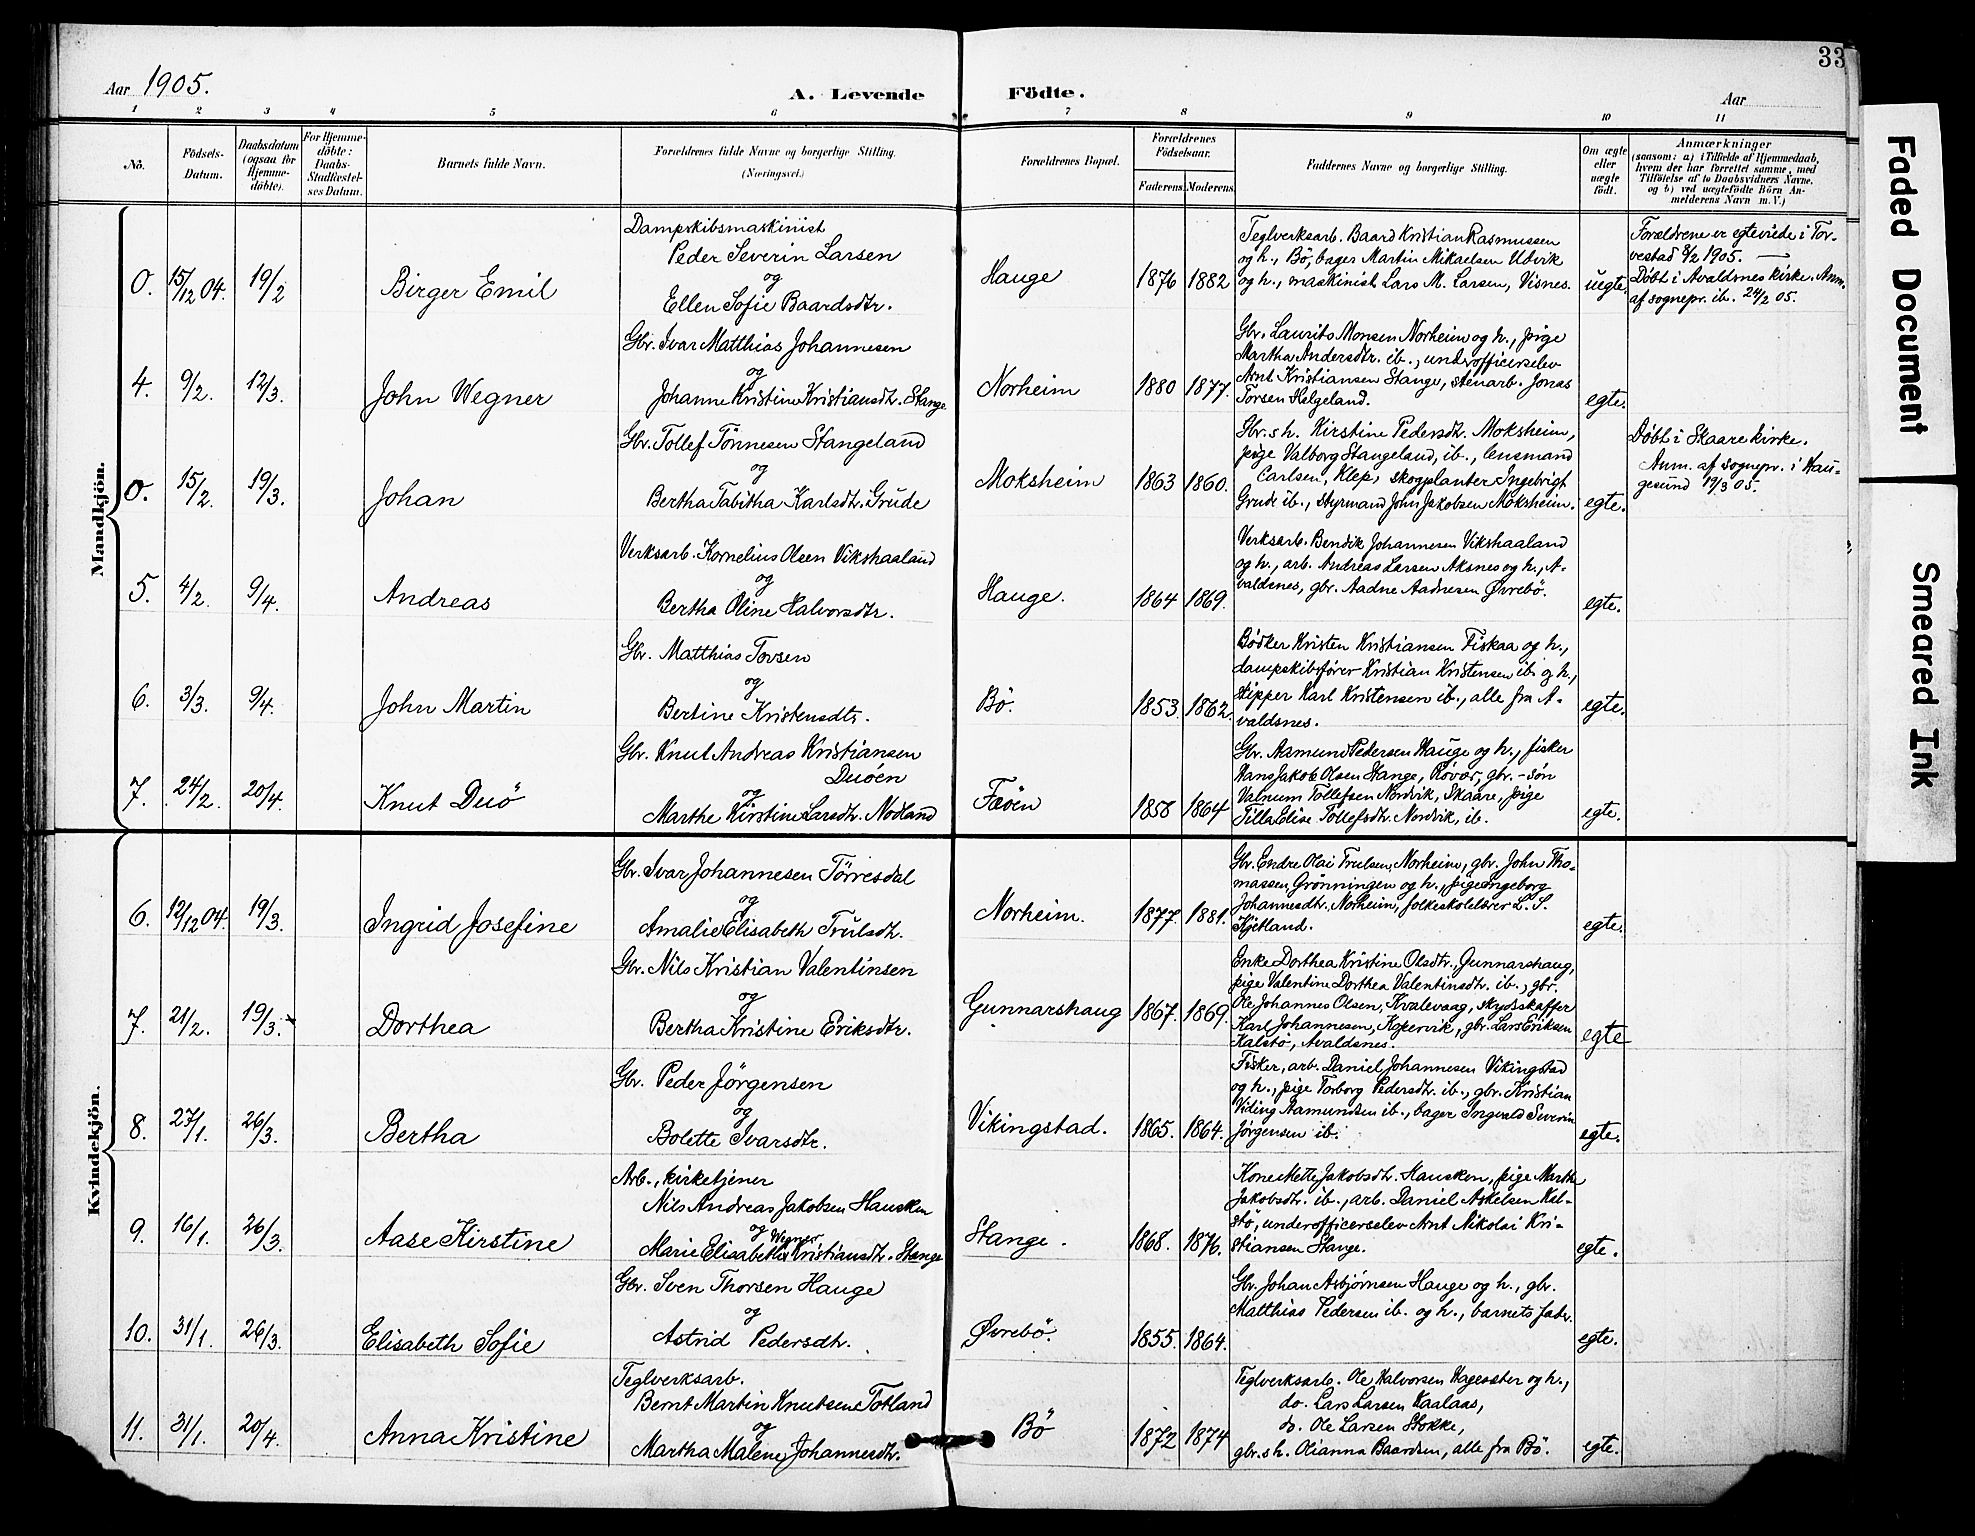 33
Aar 1905.
A. Levende Födte.
Aar
1 2 3 4 5 6 7 8 9 10 11
No.
Födsels-
Datum.
Daabsdatum
(ogsaa for
Hjemme-
döbte).
For Hjemme-
döbte:
Daabs-
Stadfæstel-
ses Datum.
Barnets fulde Navn.
Forældrenes fulde Navne og borgerlige Stilling.
(Næringsvei.)
Forældrenes Bopæl.
Forældrenes
Födselsaar.
Faderens. Moderens.
Faddernes Navne og borgerlige Stilling.
Om ægte
eller
uægte
födt.
Anmærkninger
(saasom: a) i Tilfælde af Hjemmedaab,
hvem der har forrettet samme, med
Tilföielse af to Daabsvidners Navne,
og b) ved uægtefödte Börn An-
melderens Navn m. V.)
Mandkjön.
0. 15/12 04. 19/2 Birger Emil
Dampskibsmaskinist
Peder Severin Larsen
og
Ellen Sofie Baardsdtr.
Hauge 1876 1882
Teglverksarb. Baard Kristian Rasmussen
og h., Bö, bager Martin Mikaelsen Utvik
og h., maskinist Lars M. Larsen, Visnes.
uegte.
Forældrene er egteviede i Tor-
vestad 8/2 1905. —
Döbt i Avaldsnes kirke. Anm.
af sognepr. ib. 24/2 05.
4. 9/2. 12/3. John Wegner
Gbr. Ivar Matthias Johannesen
og
Johanne Kristine Kristiansdtr. Stange
Norheim 1880 1877.
Gbr. Laurits Monsen Norheim og h., pige
Martha Andersdtr. ib., underofficerselev
Arnt Kristiansen Stange, stenarb. Jonas
Torsen Helgeland.
egte.
0. 15/2. 19/3. Johan
Gbr. Tollef Tönnesen Stangeland
og
Bertha Tabitha Karlsdtr. Grude
Moksheim 1863 1860.
Gbr.s h. Kirstine Pedersdtr. Moksheim,
pige Valborg Stangeland, ib., lensmand
Carlsen, Klep, skogplanter Ingebrigt
Grude ib., styrmand John Jakobsen Moksheim.
egte.
Döbt i Skaare kirke.
Anm. af sognepr. i Hau-
gesund 19/3 05.
5. 4/2. 9/4. Andreas
Verksarb. Kornelius Olsen Vikshaaland
og
Bertha Oline Halvorsdtr.
Hauge. 1864 1869.
Verksarb. Bendik Johannesen Vikshaaland
og h., arb. Andreas Larsen Aksnes og h., A-
valdsnes, gbr. Aadne Aadnesen Øvrebö.
egte.
6. 3/3. 9/4. John Martin
Gbr. Matthias Torsen
og
Bertine Kristensdtr.
Bö. 1853. 1862.
Bödker Kristen Kristiansen Fiskaa og h.,
dampskibsförer Kristian Kristensen ib. og h.,
skipper Karl Kristensen ib., alle fra A-
valdsnes.
egte.
7. 24/2. 20/4. Knut Duö
Gbr. Knut Andreas Kristiansen
Duöen
og
Marthe Kirstine Larsdtr. Nodland
Fæöen 1858 1864
Gbr. Aamund Pedersen Hauge og h., fisker
Hans Jakob Olsen Hange, Rövær, gbr.-sön
Valnum Tollefsen Nordvik, Skaare, pige
Tilla Elise Tollefsdtr. Nordvik, ib.
egte.
Kvindekjön.
6. 12/12 04. 19/3. Ingrid Josefine
Gbr. Ivar Johannesen Törresdal
og
Amalie Elisabeth Trulsdtr.
Norheim. 1877. 1881.
Gbr. Endre Olai Trulsen, Norheim, gbr. John Tho-
massen Grönningen og h., pige Ingeborg
Johannesdtr. Norheim, folkeskolelærer L. S.
Kjetland.
egte.
7. 21/2. 19/3. Dorthea
Gbr. Nils Kristian Valentinsen
og
Bertha Kristine Eriksdtr.
Gunnarshaug 1867. 1869.
Enke Dorthea Kristine Olsdtr., Gunnarshaug,
pige Valentine Dorthea Valentinsdtr. ib., gbr.
Ole Johannes Olsen, Kvalevaag, skydsskaffer
Karl Johannesen, Kopervik, gbr. Lars Eriksen
Kalstö, Avaldsnes.
egte
8. 27/1. 26/3. Bertha
Gbr. Peder Jörgensen
og
Bolette Ivarsdtr.
Vikingstad. 1865. 1864.
Fisker, arb. Daniel Johannesen Vikingstad
og h., pige Torborg Pedersdtr. ib., gbr. Kristian
Viking Aamundsen ib., bager Ingvald Severin
Jörgensen ib.
egte.
9. 16/1. 26/3. Aase Kirstine
Arb., kirketjener
Nils Andreas Jakobsen Hausken
og
Marie Elisabeth Wegner Kristiansdtr. Stange
Stange. 1868. 1876.
Kone Mette Jakobsdtr. Hausken, pige Martha
Jakobsdtr. ib., arb. Daniel Askelsen Kal-
stö, underofficerselev Arnt Nikolai Kri-
stiansen Stange.
egte.
10. 31/1. 26/3. Elisabeth Sofie
Gbr. Sven Thorsen Hauge
og
Astrid Pedersdtr.
Øvrebö. 1855. 1864.
Gbr. Johan Asbjörnsen Hauge og h., gbr.
Matthias Pedersen ib. og h., barnets fader.
egte.
11. 31/1. 20/4. Anna Kristine
Teglverksarb.
Bernt Martin Knutsen Totland
og
Martha Malene Johannesdtr.
Bö 1872 1874
Teglverksarb. Ole Halvorsen Hagesæter og h.,
do. Lars Larsen Haalaas,
do. Ole Larsen Stokke,
gbr.s h. Olianna Baardsen, alle fra Bö.
egte.
Faded Document
Smeared Ink